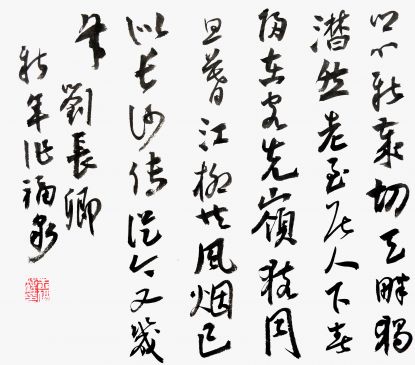 鄉心新歲切天畔獨
潸然老至居人下春
歸在客先嶺猿同
旦暮江柳共風烟已
似長沙傅從今又幾
年
劉長卿
新年作福泉